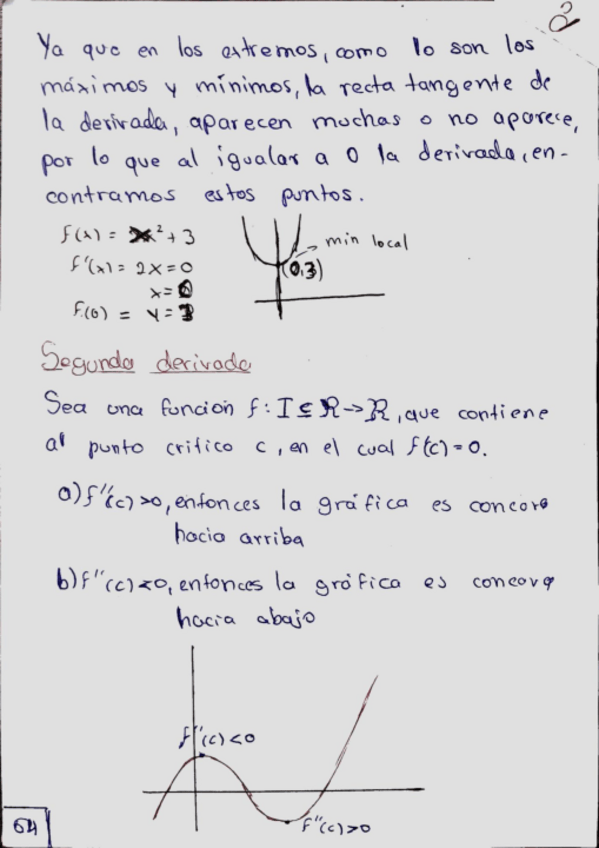 2
Ya que en los extremos, como lo son los
máximos y mínimos, la recta tangente de
la derivada, aparecen muchas o no aparece,
por lo que al igualar a 0 la derivada, en-
contramos estos puntos.
f(x) = x² + 3
f'(x) = 2x = 0
x = 0
f(0) = y = 3
min local
(0,3)
Segunda derivada
Sea una función f: I ⊆ ℝ → ℝ, que contiene
al punto critico c, en el cual f'(c) = 0.
a) f''(c) > 0, entonces la gráfica es concava
hacia arriba
b) f''(c) < 0, entonces la gráfica es concava
hacia abajo
f''(c) < 0
f''(c) > 0
64